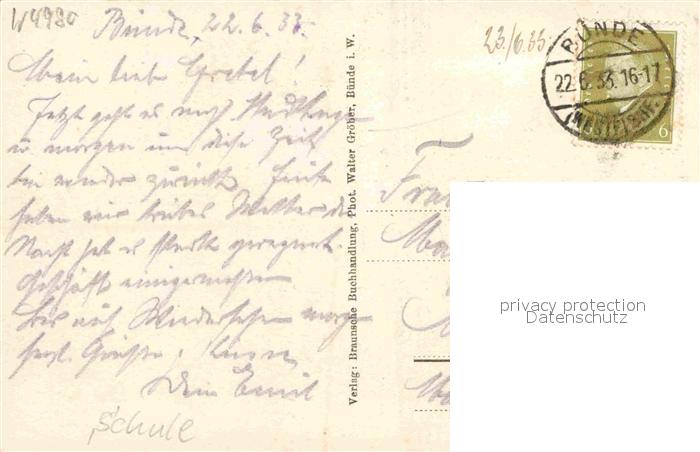 W4980
Bünde, 22.6.33.
23./6.33
BÜNDE
22.6.33.16-17
(WESTF.)
6
Mein liebe Gretel!
Jetzt geht es nach
u morgen um diese Zeit
bin wieder zurück. Heute
haben wir trübes Wetter, die
Nacht hat es stark geregnet.
Geschäft einigermaßen
Bis auf Wiedersehen morgen
herzl. Grüße
Dein Emil
Schule
Verlag: Braunsche Buchhandlung, Phot. Walter Gröber, Bünde i. W.
Frau
privacy protection
Datenschutz